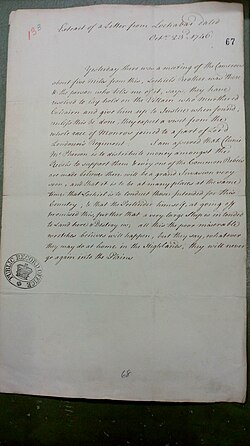 198
67
Extract of a Letter from Lochabar dated
Octr. 23d. 1746
Yesterday there was a meeting of the Camerons
about five miles from this, Locheils Brother was there
& the person who tells me of it, says, they have
resolved to lay hold on the Villain who murthered
Culcairn and give him up to Justice, when found,
untill this be done, they expect a visit from the
whole race of Monroes joined to a part of Lord
Loudouns Regiment. I am assured that Clunie
McPherson is to distribute money amongst the
People to support them & many are of the Common
are made believe there will be a grand Invasion very
soon, and that it is to be at many places at the same
time that Locheil is to conduct those intended for this
Country, & that the Pretender himself, at going off
promised this, further that a very large Ship is intended
to Land here a Destroy us, all this the poor miserable
wretches believes will happen, but they say, whatever
they may do at home in the Highlands, they will never
go again into the Plains
PUBLIC RECORD OFFICE
68